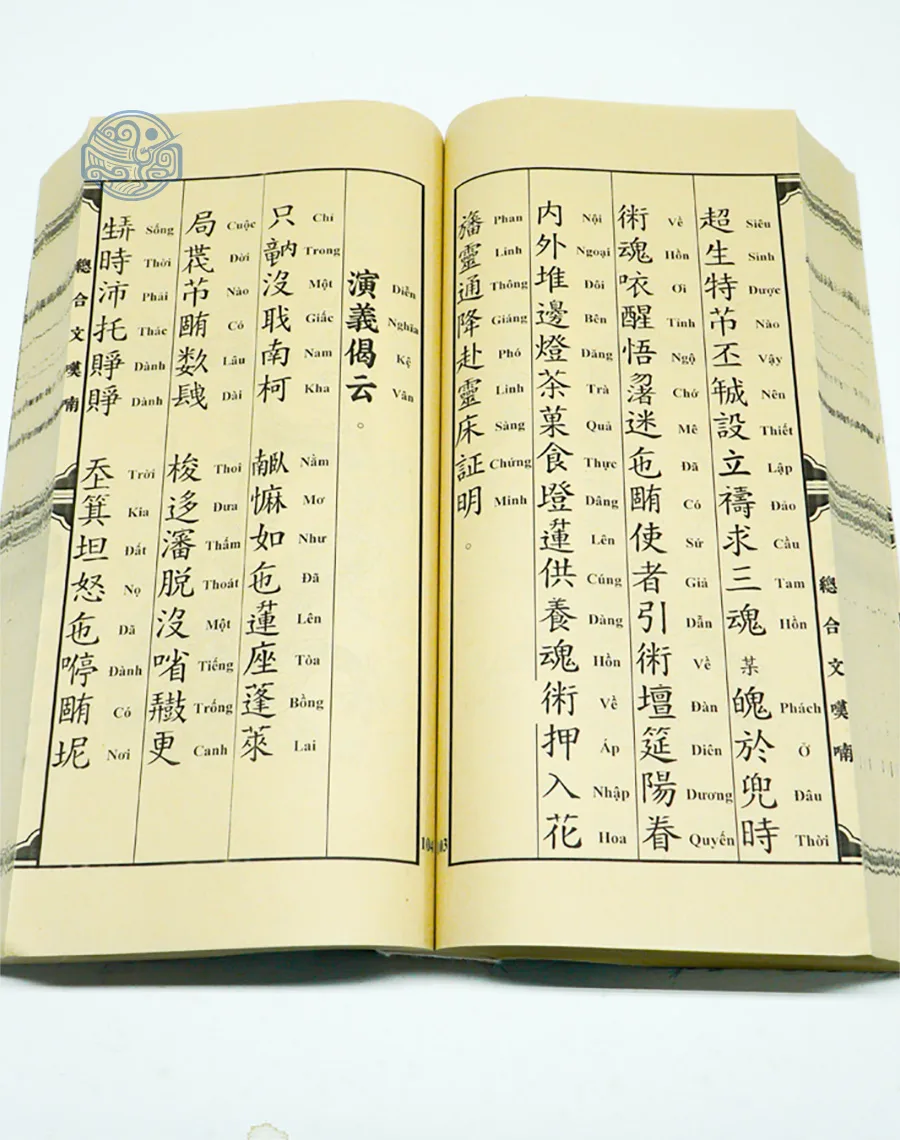 總合文嘆喃
超生特芇丕𢧚設立禱求三魂某魄於兜時
Siêu Sinh Được Nào Vậy Nên Thiết Lập Đảo Cầu Tam Hồn Phách Ở Đâu Thời
術魂𠲖醒悟迷㐌𣎏使者引術壇筵陽眷
Về Hồn Ơi Tỉnh Ngộ Chớ Mê Đã Có Sứ Giả Dẫn Về Đàn Diên Dương Quyến
内外堆邊燈茶菓食蓮供養魂術押入花
Nội Ngoại Đôi Bên Đăng Trà Quả Thực Dâng Lên Cúng Dàng Hồn Về Áp Nhập Hoa
旛靈通降赴靈床証明。
Phan Linh Thông Giáng Phó Linh Sàng Chứng Minh
103
104
演義偈云。
Diễn Nghĩa Kệ Vân
只𥪝沒南柯 𦣰㦄如㐌蓮座蓬萊
Chỉ Trong Một Giấc Nam Kha Nằm Mơ Như Đã Lên Tòa Bồng Lai
局芇𣎏数𨱽 梭迻瀋脱沒㗂𪔠更
Cuộc Đời Nào Có Lâu Dài Thoi Đưa Thấm Thoát Một Tiếng Trống Canh
𤯩時沛托𧶄𧶄 𡗶箕坦怒㐌𣎏坭
Sống Thời Phải Thác Dành Dành Trời Kia Đất Nọ Đã Đành Có Nơi
總合文嘆喃